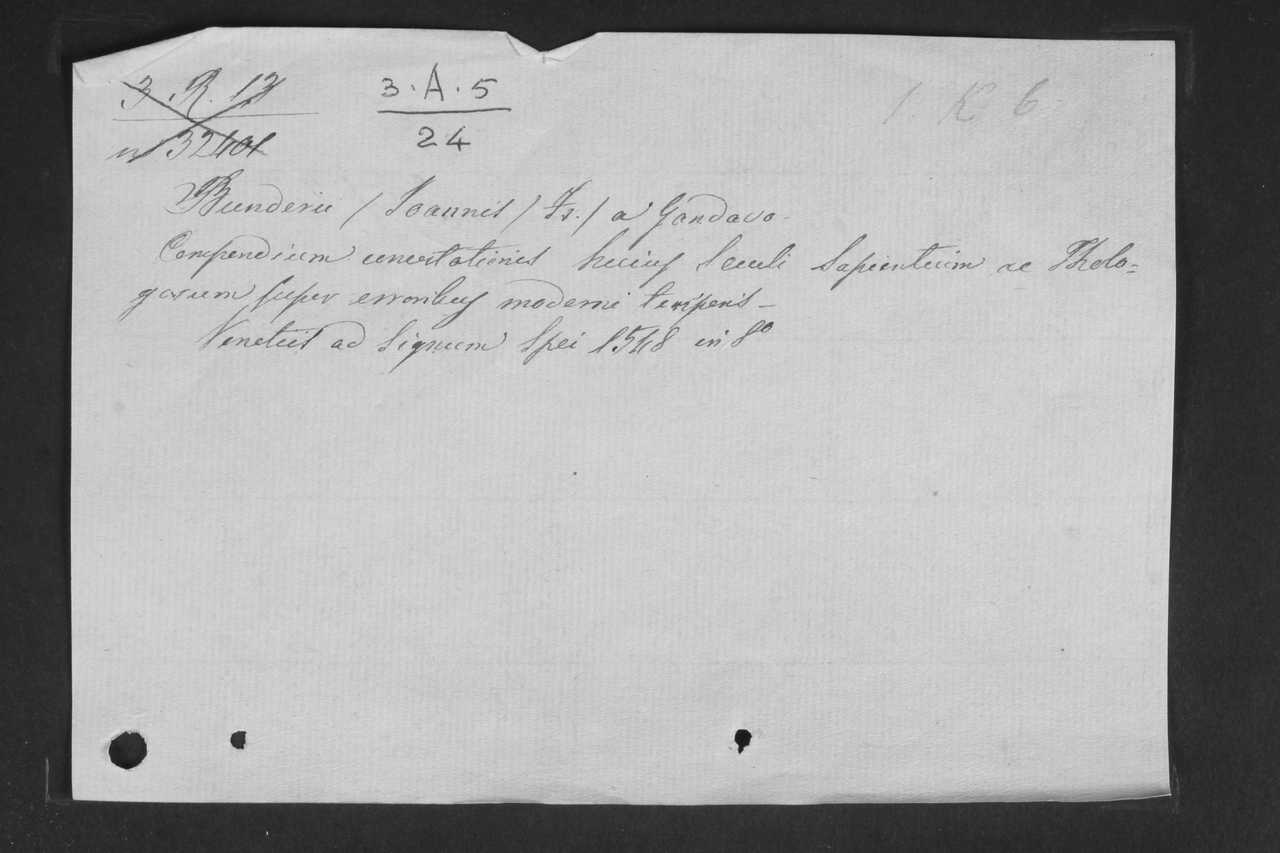 3. R. 12
3.A.5
1. K 6
n 32401
24
Bunderii / Joannis / Fr. / a Gandavo.
Compendium concertationis huius seculi sapientium ac Theolo=
gorum super erroribus moderni temporis –
Venetiis ad signum Spei 1548 in 8º